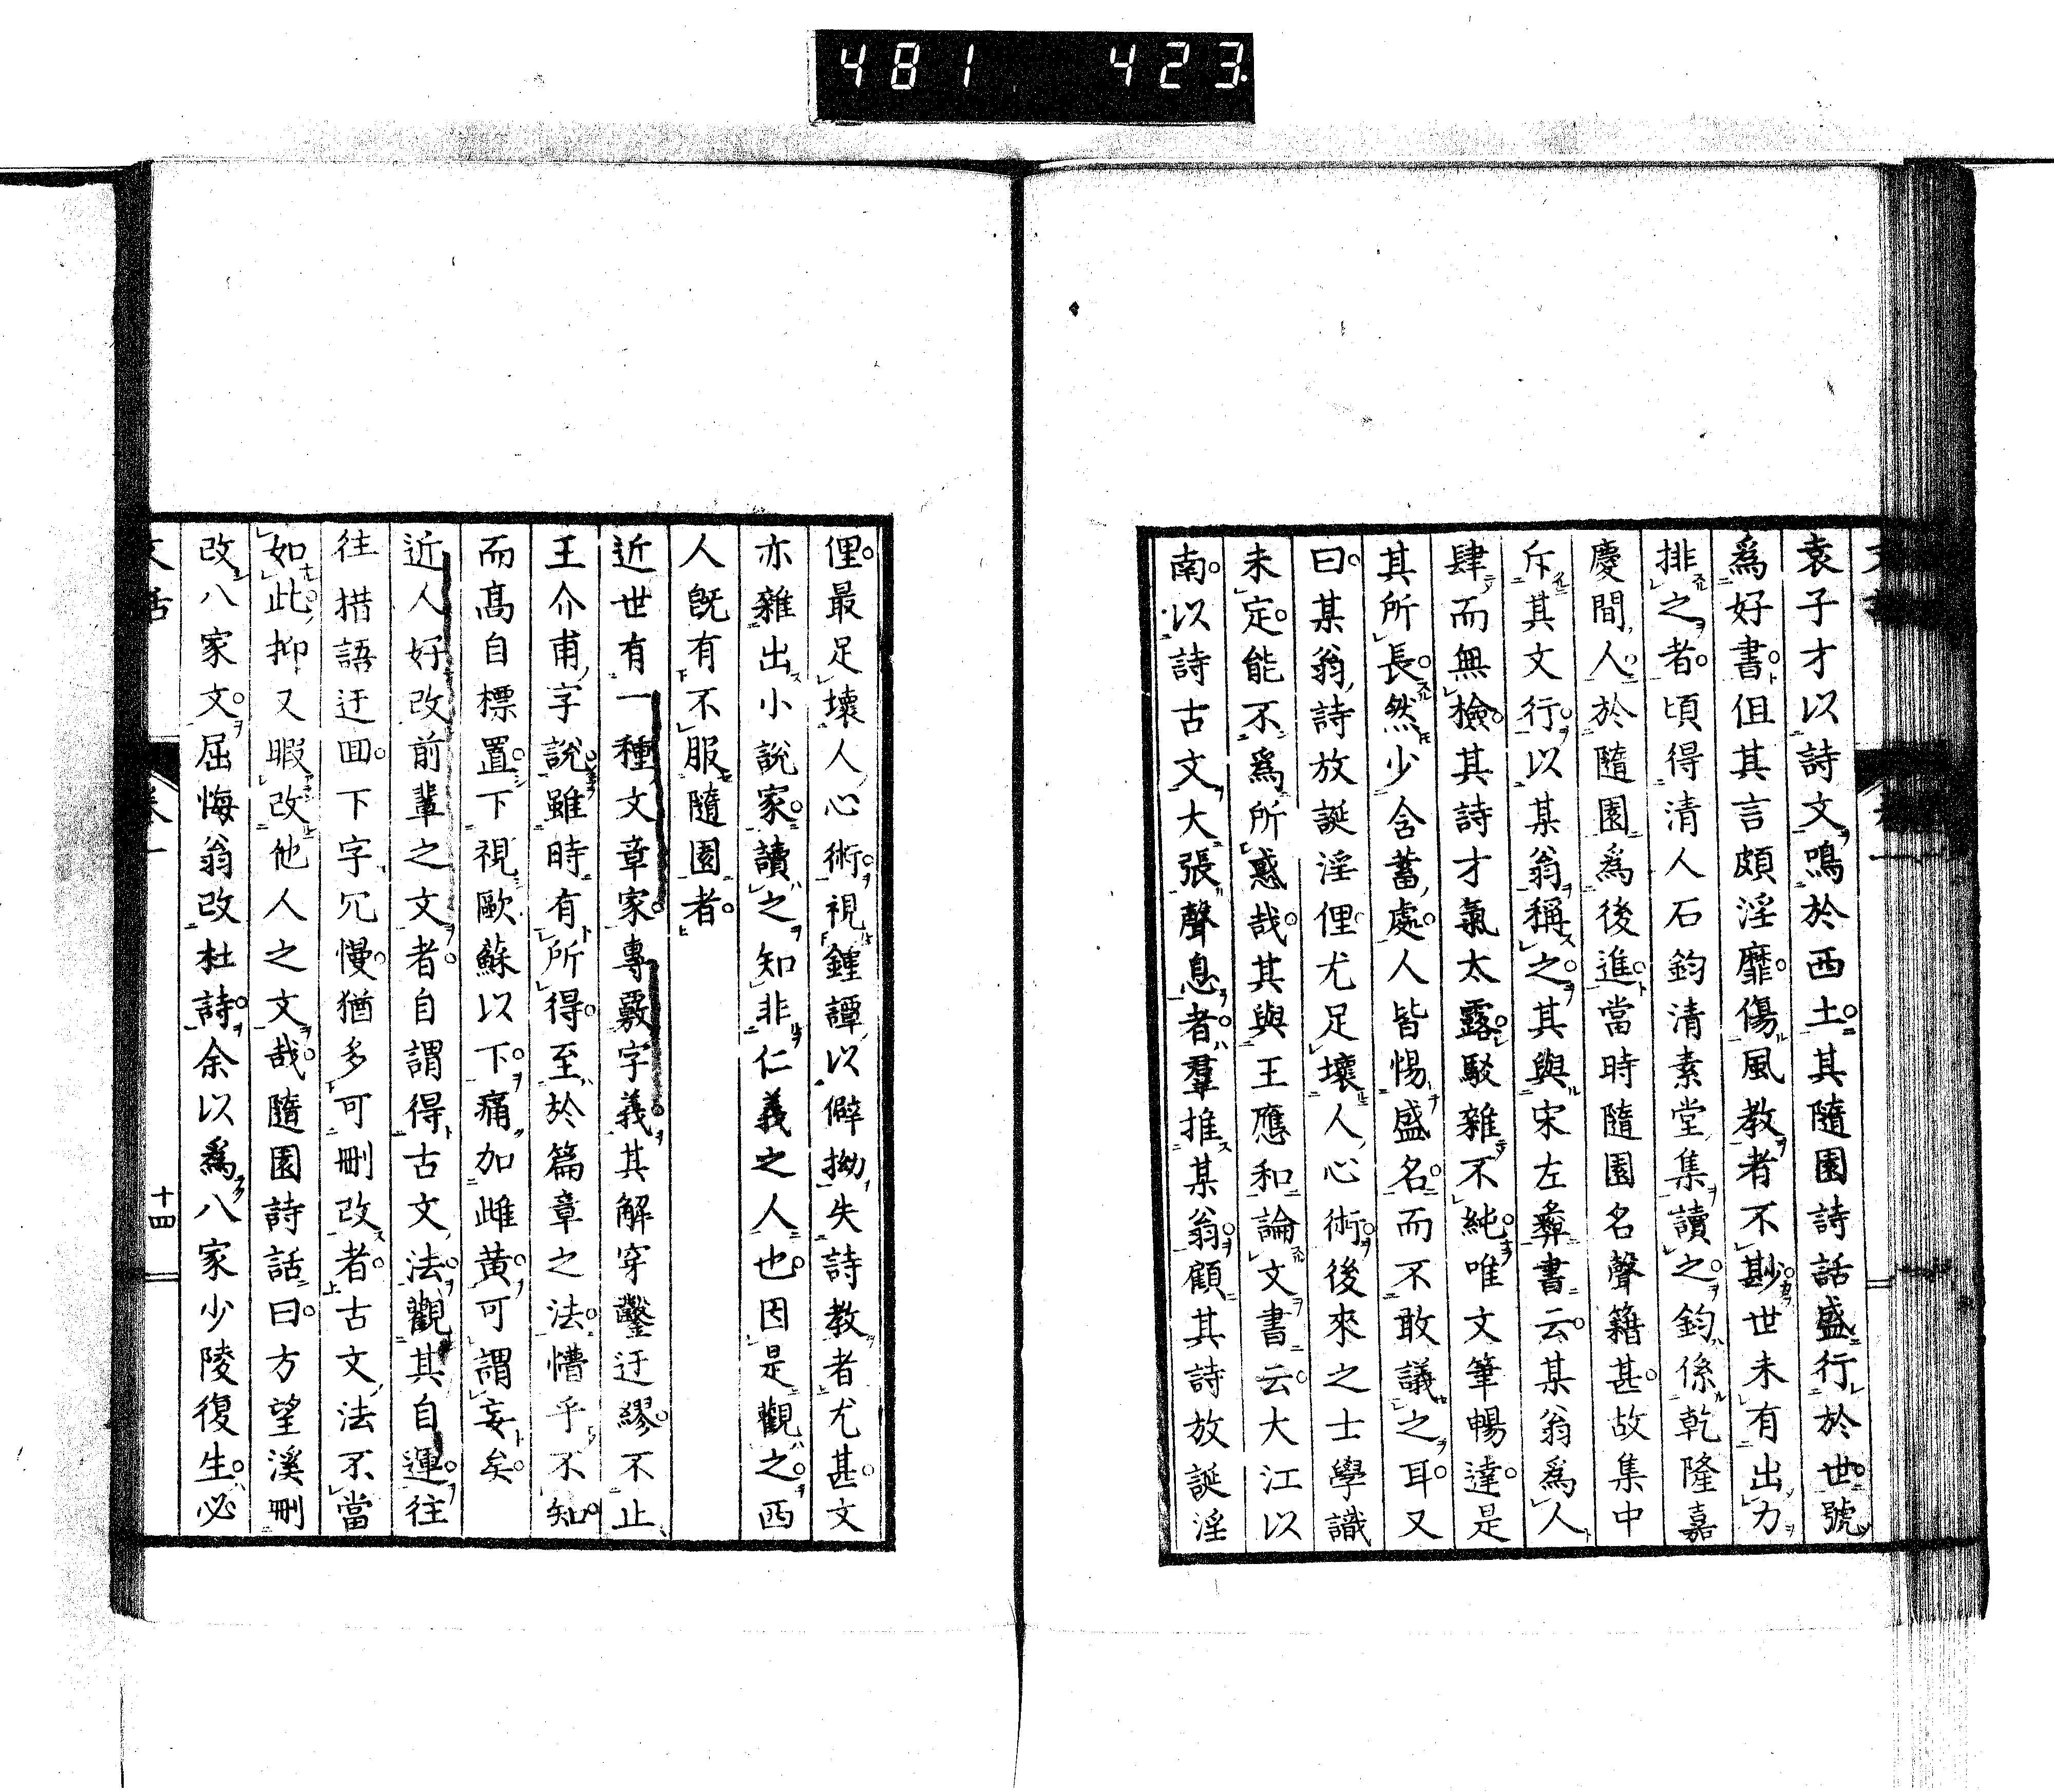 481 423
袁子才以詩文鳴於西土其隨園詩話盛行於世號
爲好書但其言頗淫靡傷風教者不尠世未有出力
排之者頃得清人石鈞清素堂集讀之鈞係乾隆嘉
慶間人於隨園爲後進當時隨園名聲籍甚故集中
斥其文行以某翁稱之其與宋左彝書云某翁爲人
肆而無檢其詩才氣太露駁雜不純唯文筆暢達是
其所長然少含蓄處人皆惕盛名而不敢議之耳又
曰某翁詩放誕淫俚尤足壞人心術後來之士學識
未定能不爲所惑哉其與王應和論文書云大江以
南以詩古文大張聲息者羣推某翁顧其詩放誕淫
俚最足壞人心術視鍾譚以僻拗失詩教者尤甚文
亦雜出小說家讀之知非仁義之人也因是觀之西
人既有不服隨園者
近世有一種文章家專覈字義其解穿鑿迂繆不止
王介甫字說雖時有所得至於篇章之法懵乎不知
而高自標置下視歐蘇以下痛加雌黃可謂妄矣
近人好改前輩之文者自謂得古文法觀其自運往
往措語迂回下字冗慢猶多可刪改者古文法不當
如此抑又暇改他人之文哉隨園詩話曰方望溪刪
改八家文屈悔翁改杜詩余以爲八家少陵復生必
文話 卷一 十四